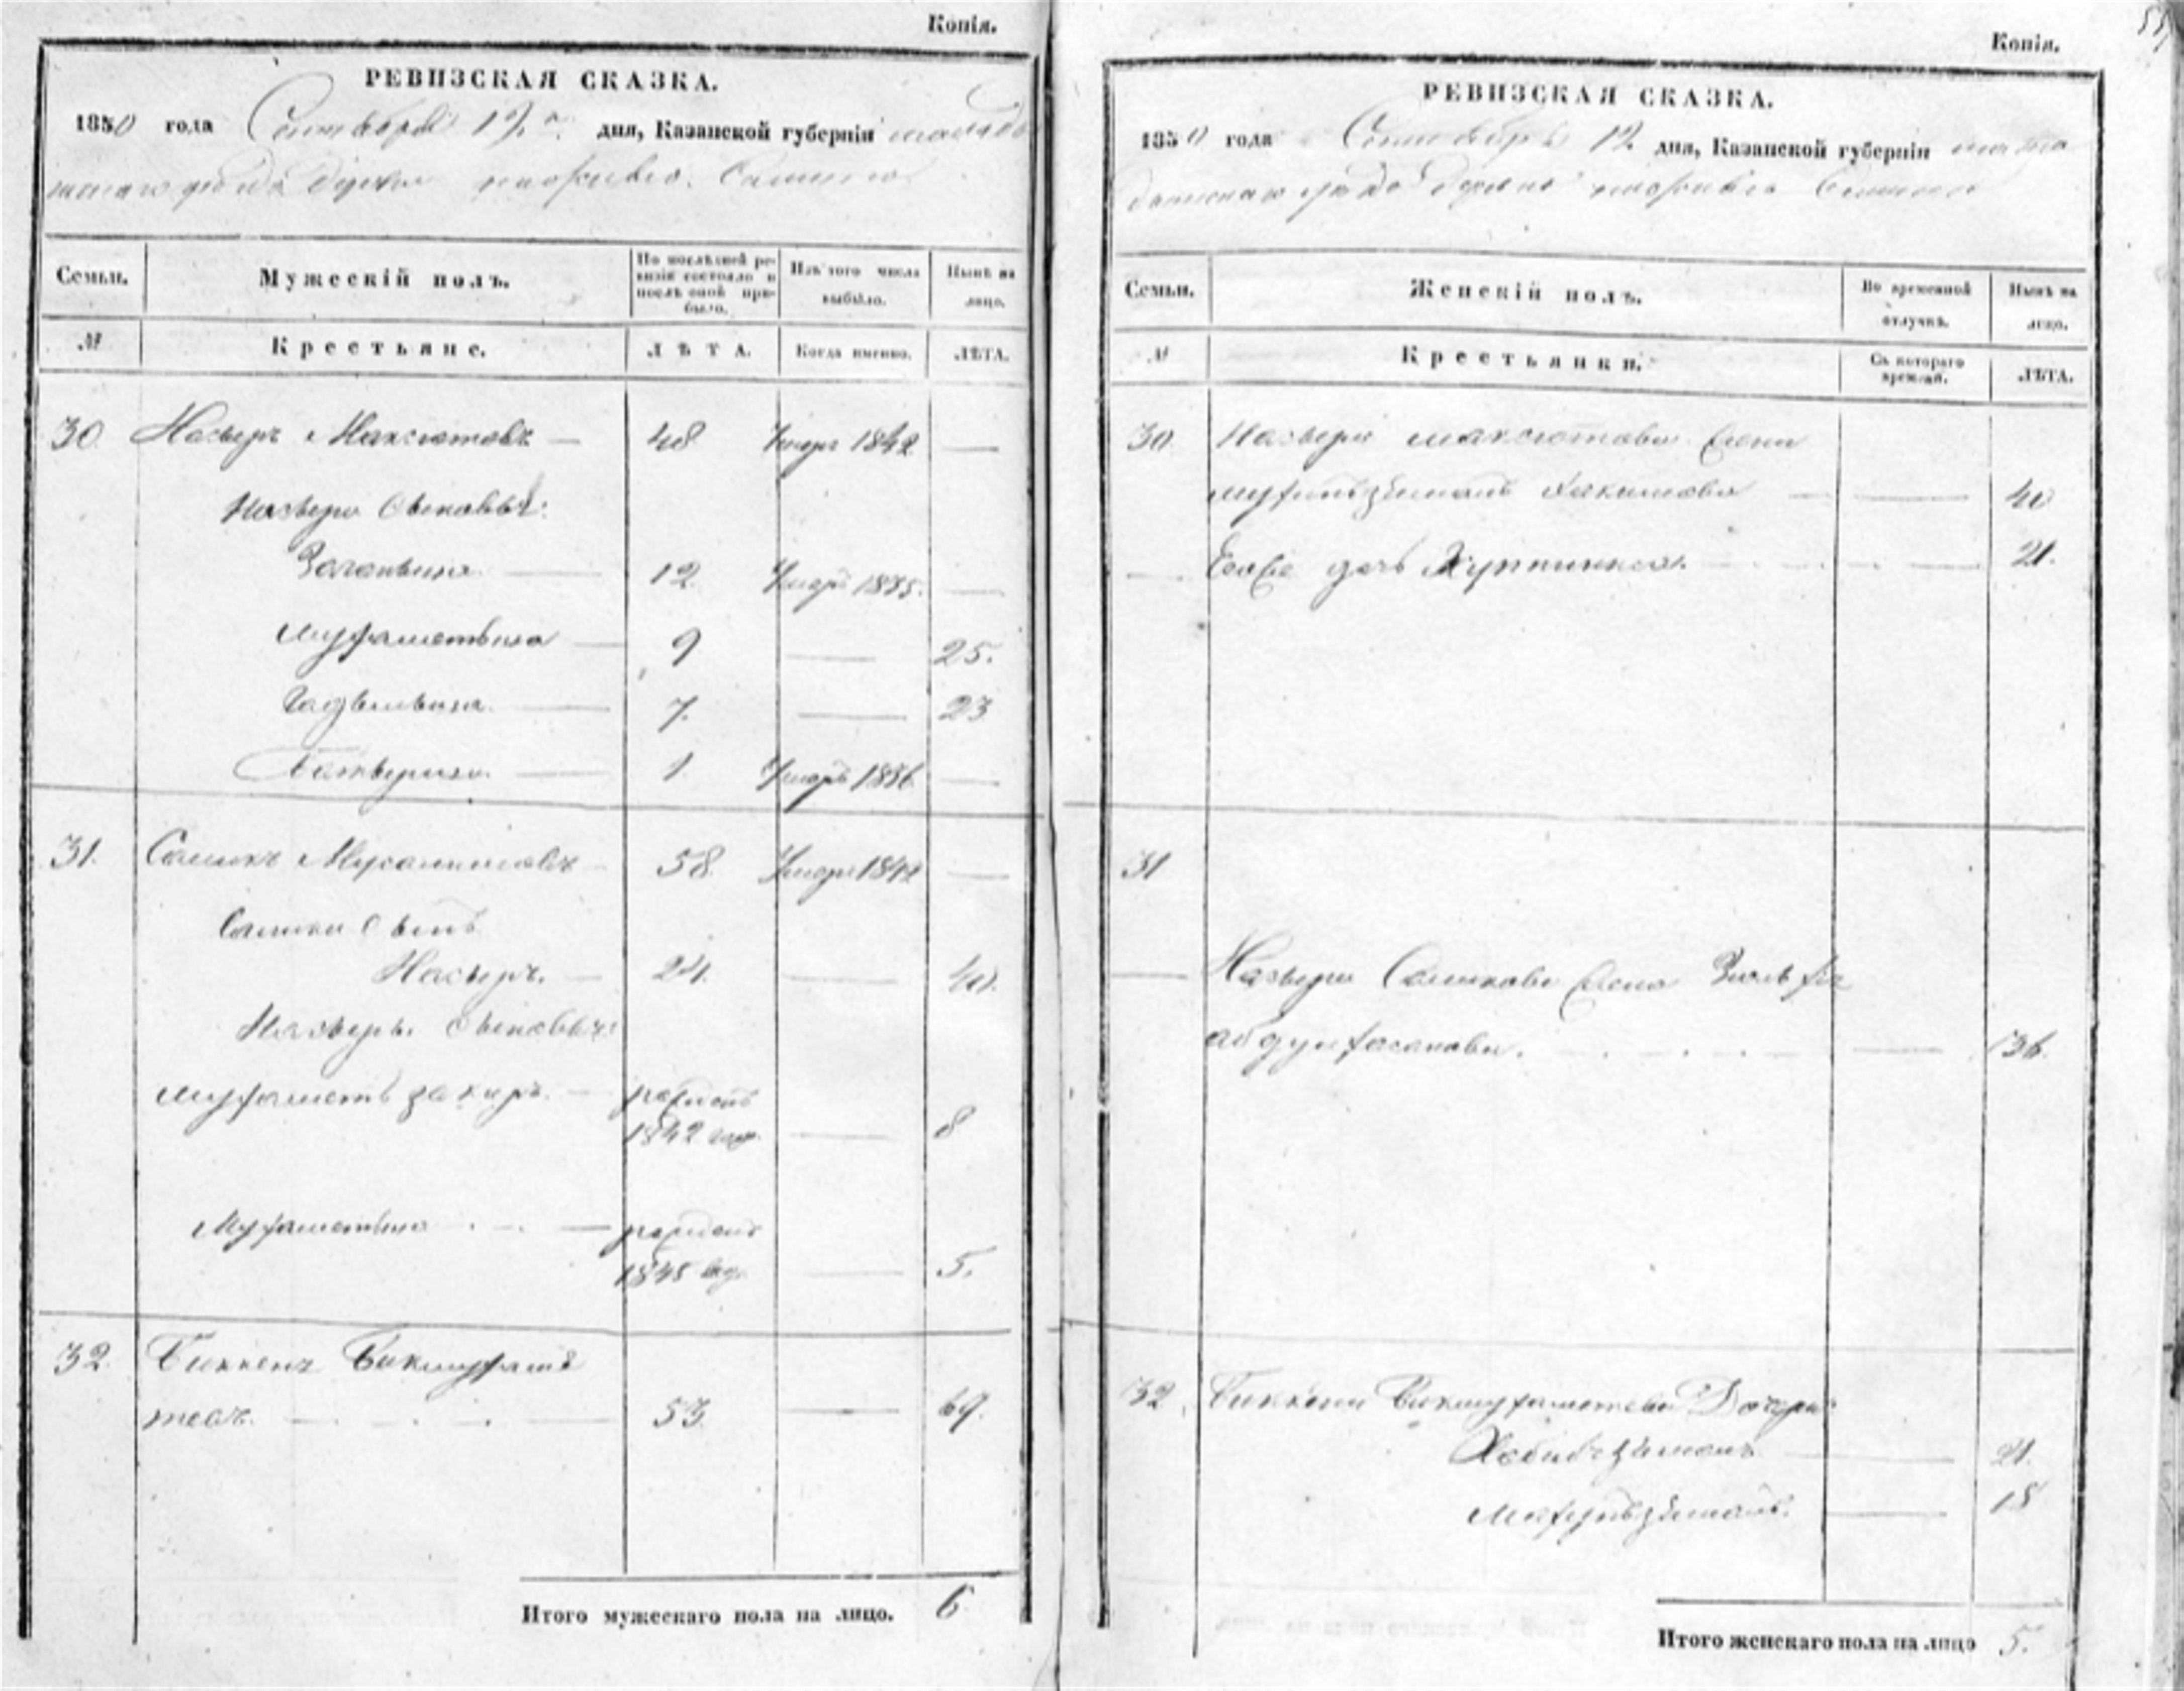 Копія.
РЕВИЗСКАЯ СКАЗКА.
1850 года Сентября 12 дня, Казанской губерніи мамады
шскаго уѣзда
Семьи. Мужескій полъ. По послѣдней ревизіи состояло и послѣ оной прибыло. Изъ того числа выбыло. Нынѣ на лицо.
№ Крестьяне. ЛѢТА. Когда именно. ЛѢТА.
30. Насыръ Максютовъ — 48 Умеръ 1842 —
Насыра Сыновья:
12. Умеръ 1835. —
Мухаметьша — 9 — 25.
7. — 23
1. Умеръ 1836 —
31. Салихъ — 58. Умеръ 1842 —
Салиха Сынъ
Насыръ. — 24. — 40.
Насыра Сыновья:
Мухаметь закиръ. — рожденъ
1842 году — 8
рожденъ
1845 году — 5.
32. Биккенъ Бикмухаме
тевъ. — 53. — 69.
Итого мужескаго пола на лицо. 6
Копія.
РЕВИЗСКАЯ СКАЗКА.
1850 года Сентября 12 дня, Казанской губерніи мама
дышскаго уѣзда
Семьи. Женскій полъ. Во временной отлучкѣ. Нынѣ на лицо.
№ Крестьянки. Съ котораго времени. ЛѢТА.
30 Насыра Максютова жена
Хакимова — — 40
Его же дочь — 21.
31
— Насыра Салихова жена
— 36.
32. Биккеня Бикмухаметева Дочери:
Хабибъзямалъ — 21.
— 18
Итого женскаго пола на лицо 5.